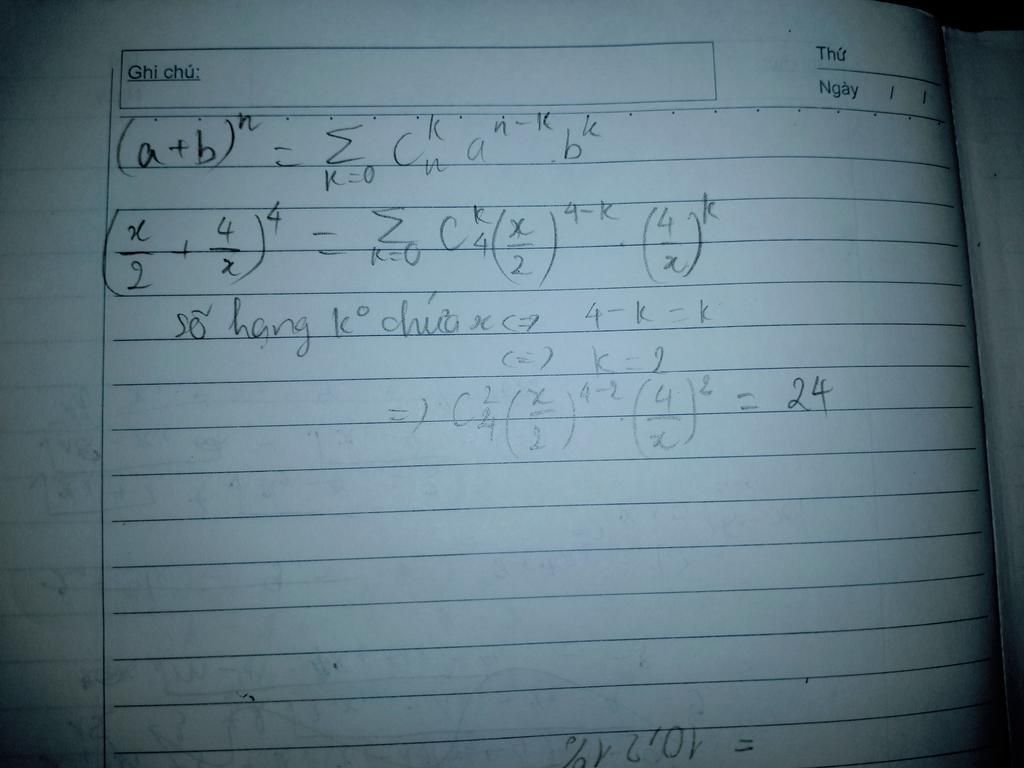 Ghi chú:
Thứ
Ngày / /
(a+b)^n = Σ_{k=0} C_n^k a^{n-k} . b^k
(x/2 + 4/x)^4 = Σ_{k=0} C_4^k (x/2)^{4-k} . (4/x)^k
số hạng k° chứa x <=> 4-k = k
<=> k = 2
=> C_4^2 (x/2)^{4-2} . (4/x)^2 = 24
= 10,21%